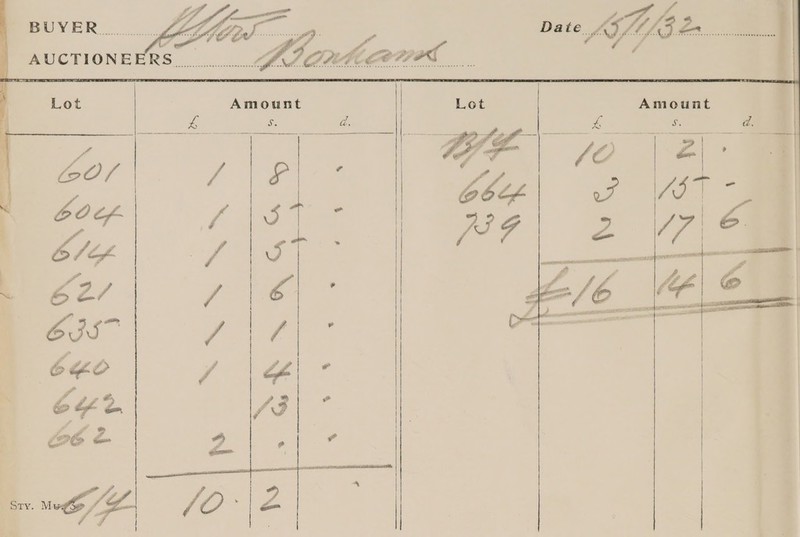 BUYER
Date 15/1/32
AUCTIONEERS Bonhams
Lot Amount
£ s. d.
601 1 8 "
604 1 5 "
614 1 5 "
621 1 6 "
635 1 1 "
640 1 4 "
642 13 "
662 2 " "
C/f 10 . 2 "
STY.
Lot Amount
£ s. d.
B/f 10 2 "
664 3 15 -
739 2 17 6
£16 14 6